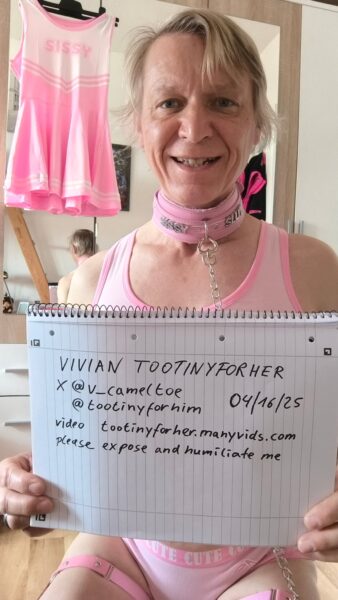 SISSY
SISSY
VIVIAN TOOTINYFORHER
X @v_cameltoe
@tootinyforhim 04/16/25
video tootinyforher.manyvids.com
please expose and humiliate me
CUTE CUTE